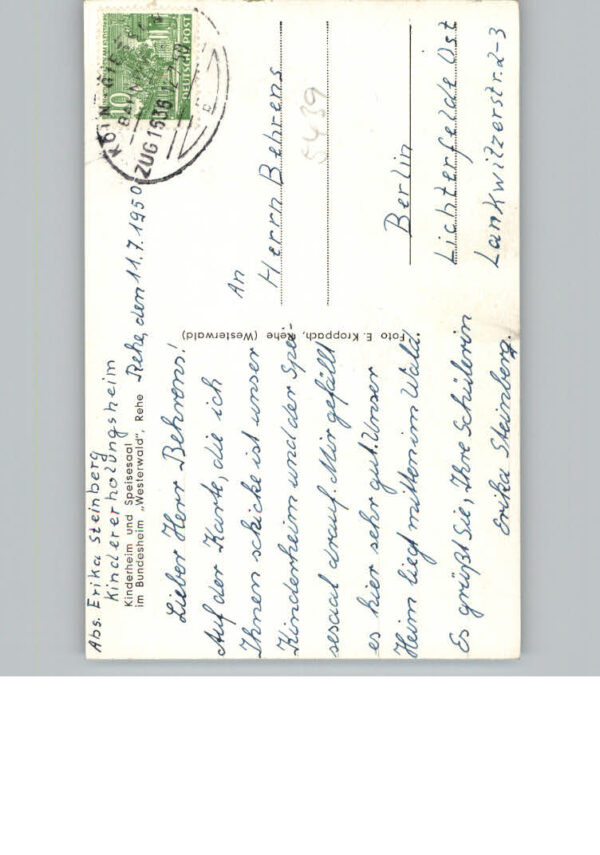 Abs. Erika Steinberg
Kindererholungsheim
Kinderheim und Speisesaal
im Bundesheim „Westerwald", Rehe
Rehe, den 11.7.1950
Lieber Herr Behrens!
Auf der Karte, die ich
Ihnen schicke ist unser
Kinderheim und der Spei-
sesaal drauf. Mir gefällt
es hier sehr gut. Unser
Heim liegt mitten im Wald.
Es grüßt Sie, Ihre Schülerin
Erika Steinberg.
Foto E. Kroppach, Rehe (Westerwald)
An
Herrn Behrens
5439
Berlin
Lichterfelde Ost
Lankwitzerstr. 2-3
DEUTSCHE POST
10
BAHN
ZUG 1536